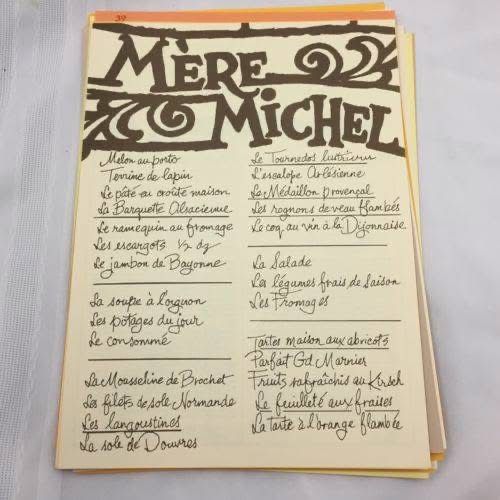 39
MÈRE
MICHEL
Melon au porto
Terrine de lapin
Le pâté en croûte maison
La Barquette Alsacienne
Le ramequin au fromage
Les escargots ½ dz
Le jambon de Bayonne
La soupe à l'oignon
Les potages du jour
Le consommé
La Mousseline de Brochet
Les filets de sole Normande
Les langoustines
La sole de Douvres
Le Tournedos
L'escalope Arlésienne
Le Médaillon provençal
Les rognons de veau flambés
Le coq au vin à la Dijonnaise
La Salade
Les légumes frais de Saison
Les Fromages
Tartes maison aux abricots
Parfait Gd. Marnier
Fruits rafraîchis au Kirsch
Le feuilleté aux fraises
La tarte à l'orange flambée